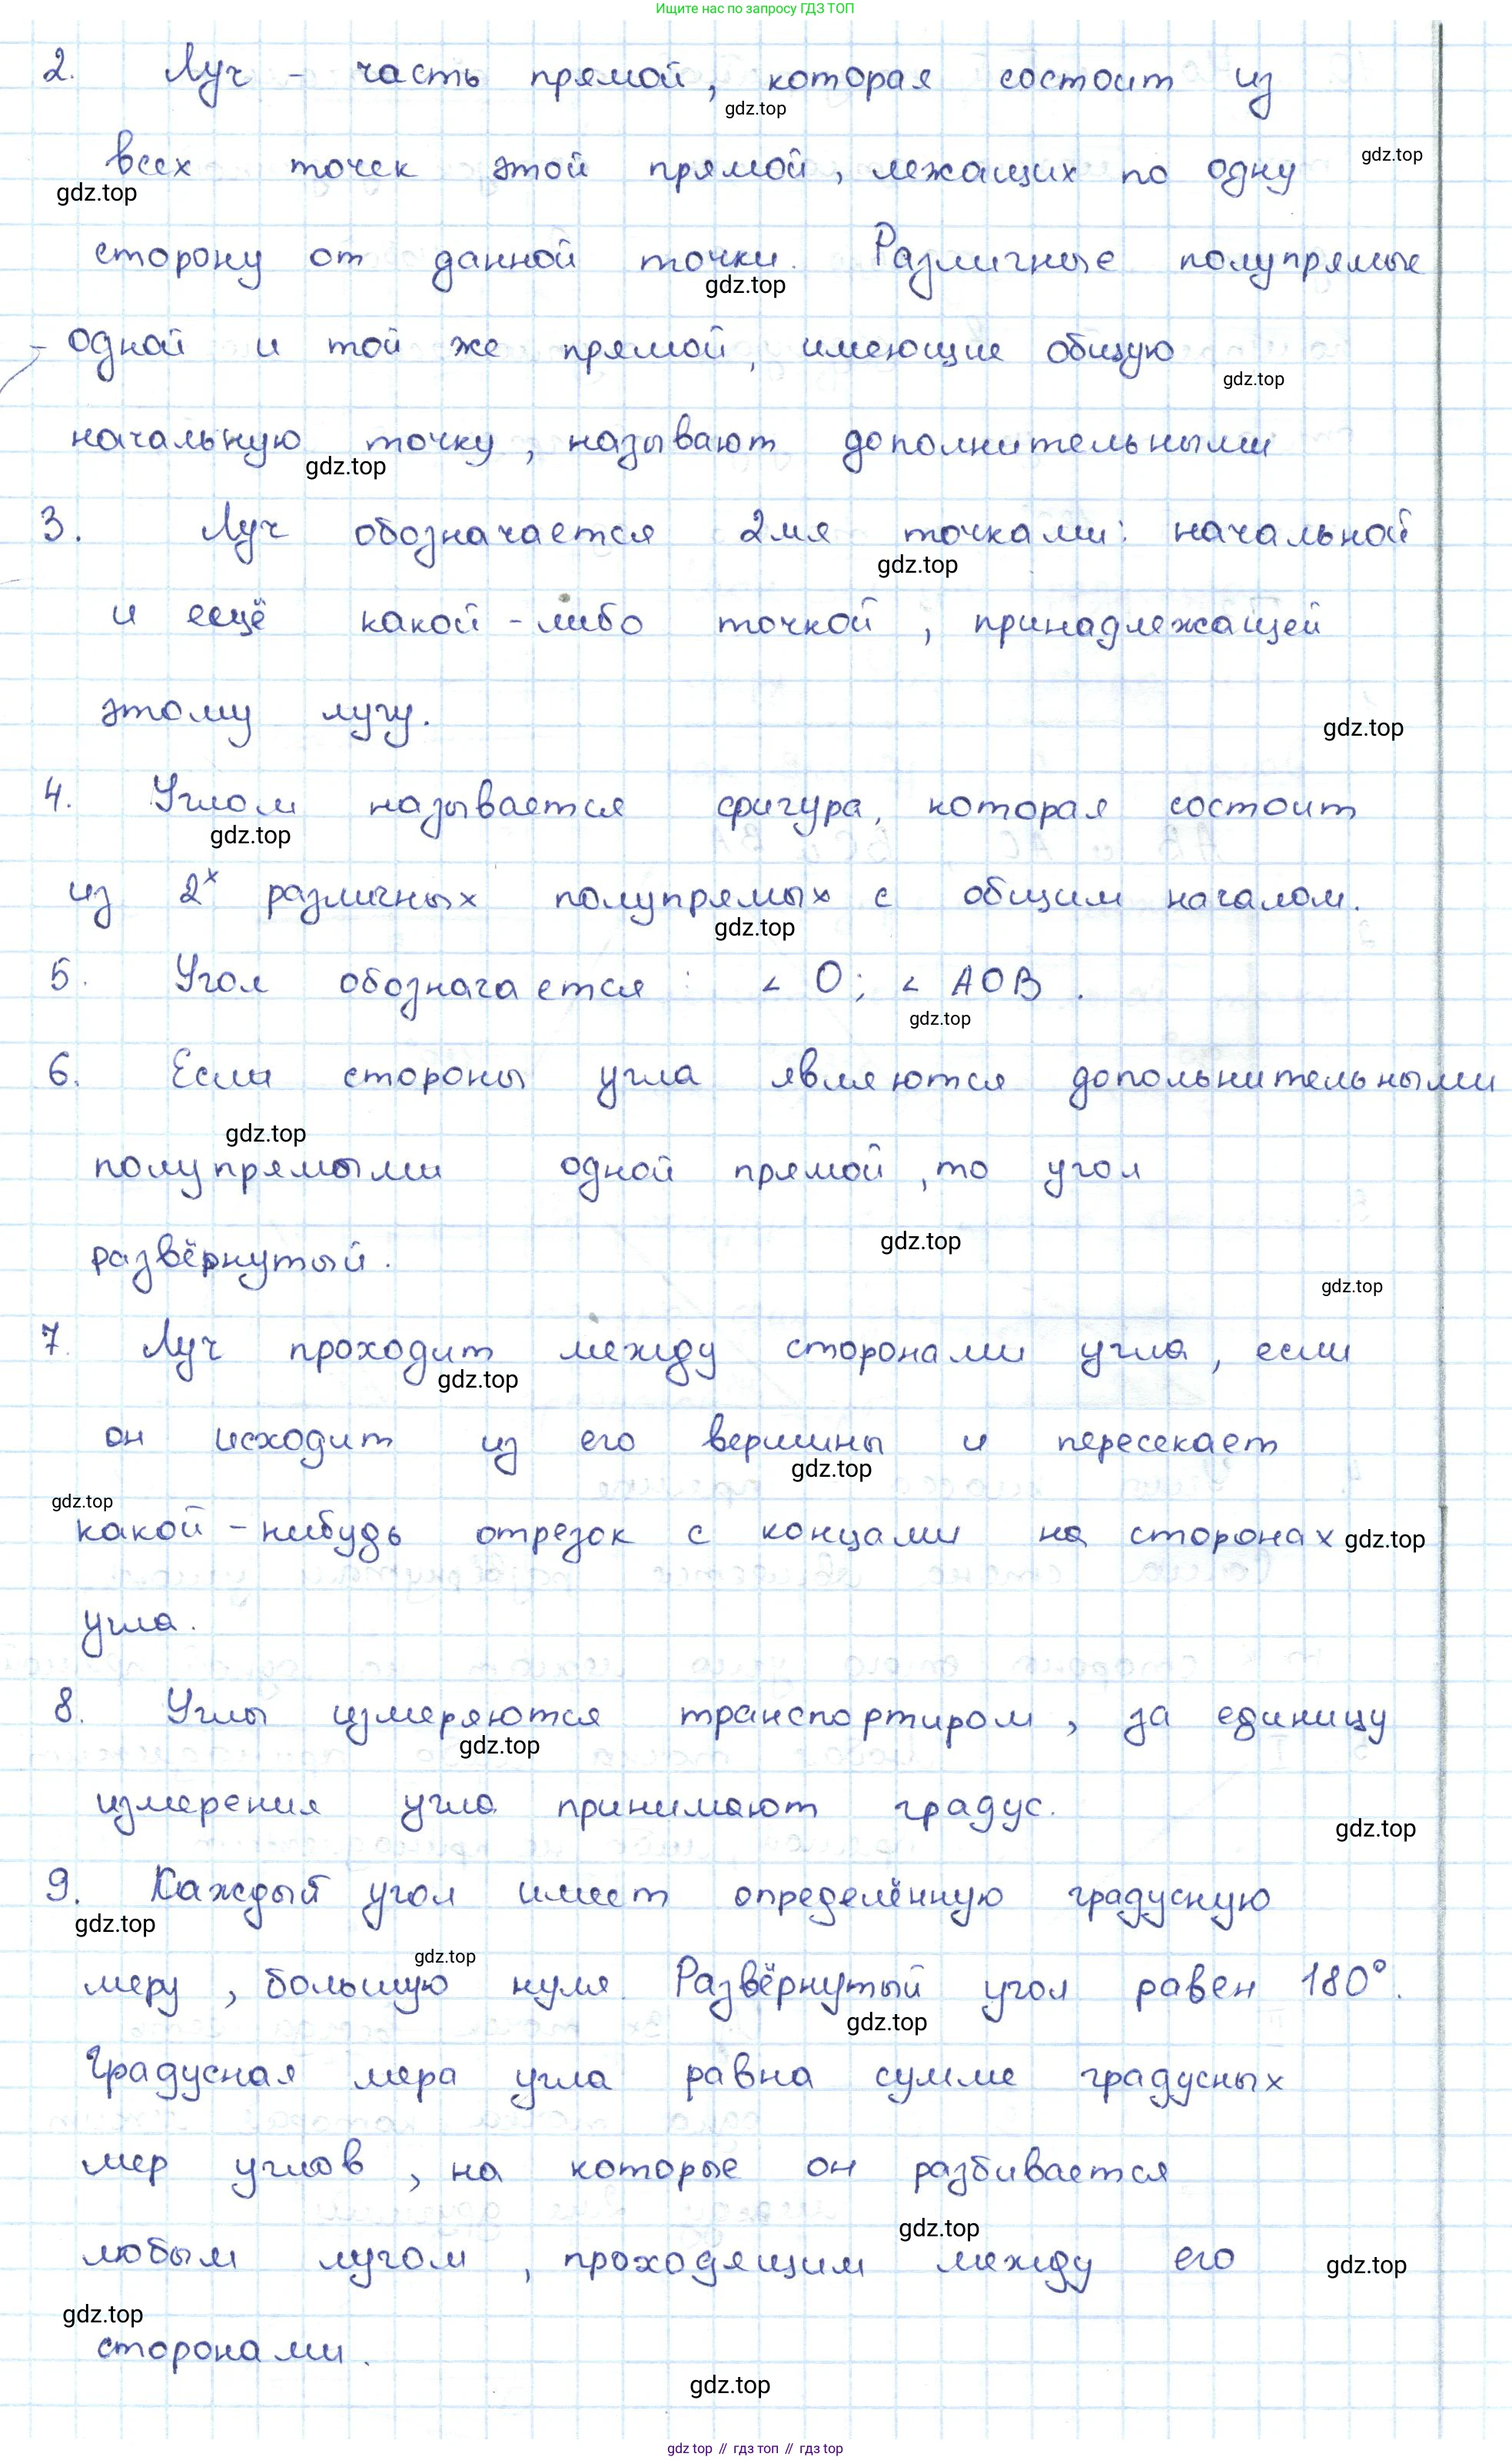 Ищите нас по запросу ГДЗ ТОП
2. Луч - часть прямой, которая состоит из
gdz.top
всех точек этой прямой, лежащих по одну
gdz.top
gdz.top
сторону от данной точки. Различные полупрямые
gdz.top
одной и той же прямой, имеющие общую
gdz.top
начальную точку, называют дополнительными
gdz.top
3. Луч обозначается 2мя точками: начальной
gdz.top
и ещё какой-либо точкой, принадлежащей
этому лучу.
gdz.top
4. Углом называется фигура, которая состоит
gdz.top
из 2х различных полупрямых с общим началом.
gdz.top
5. Угол обозначается: ∠ O; ∠ AOB.
gdz.top
6. Если стороны угла являются допольнительными
gdz.top
полупрямыми одной прямой, то угол
gdz.top
развёрнутый.
gdz.top
7. Луч проходит между сторонами угла, если
gdz.top
он исходит из его вершины и пересекает
gdz.top
gdz.top
какой-нибудь отрезок с концами на сторонах
gdz.top
угла.
8. Углы измеряются транспортиром, за единицу
gdz.top
измерения угла принимают градус.
gdz.top
9. Каждый угол имеет определённую градусную
gdz.top
gdz.top
меру, большую нуля. Развёрнутый угол равен 180°.
gdz.top
Градусная мера угла равна сумме градусных
мер углов, на которые он разбивается
gdz.top
любым лучом, проходящим между его
gdz.top
gdz.top
сторонами.
gdz.top
gdz top // гдз топ // гдз top